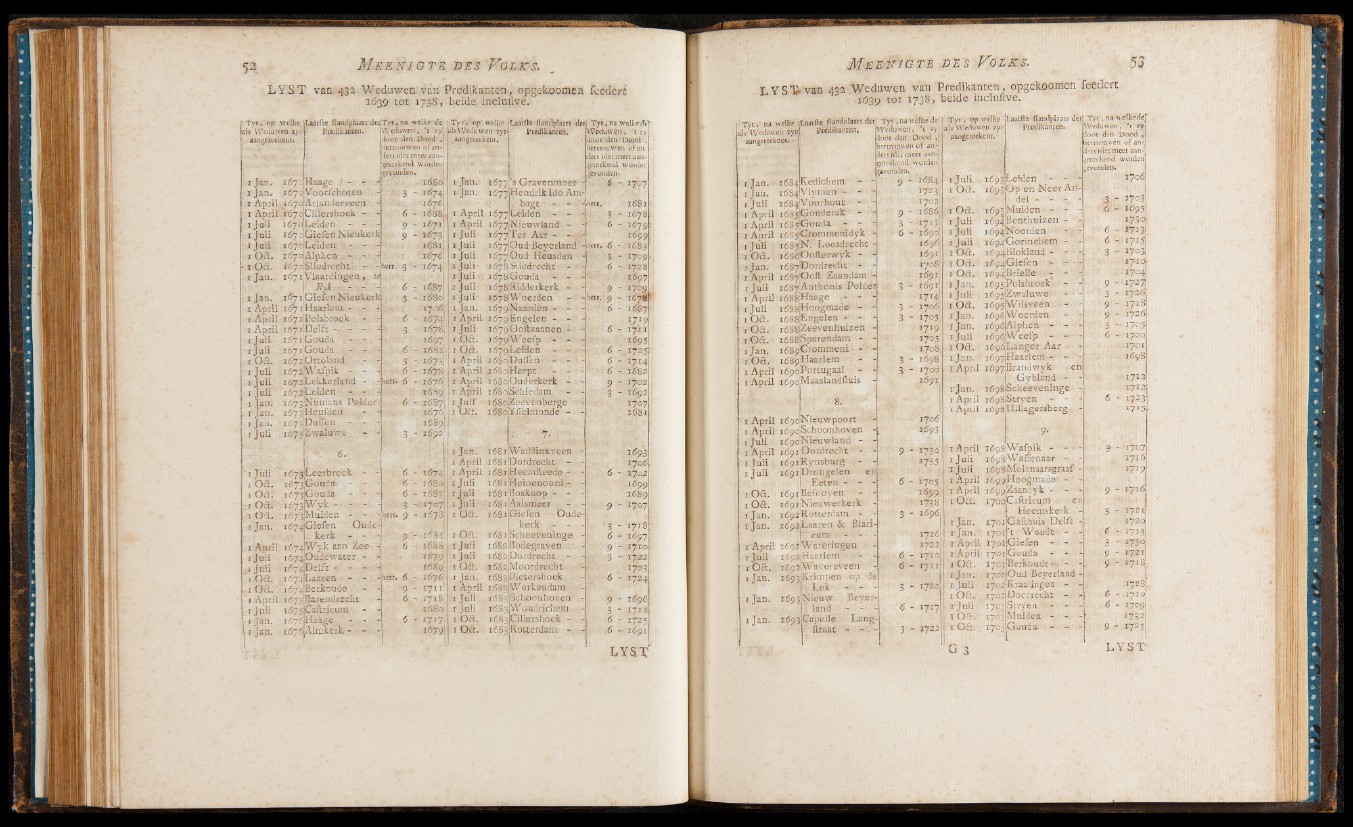 52 MEENIGTE DES VOLKS.
LYST van 432 Weduwen van Predikanten, opgekoomen feedert
1639 tot 1738, beide inclufive.
Tyt, op welke
als Weduwen zyn
aangeteekent.
Laatfte ftandplaats der
Predikanten.
Tyt, na welke de
Weduwen, 't zy
door den Dood,
hertrouwen of an-
ders niet meer aan-
geteekend worden
gevonden.
1 Jan. 1670 Haage - - - 1680
1 Jan. 1670 Voorfchoten - 3 - 1674
1 April 1670 Arlanderveen - 1676
1 April 1670 Cillershoek - - 6 - 1688
1 Juli 1670 Leiden - - - 9 - 1671
1 Juli 1670 Giefen Nieukerk 9 - 1673
1 Juli 1670 Leiden - - - 1681
1 Oct. 1670 Alphen - - - 1676
1 Oct. 1670 Sliedrecht - - hertr. 3 - 1674
1 Jan. 1671 Vlaardingen, te
Ryk - - 6 - 1687
1 Jan. 1671 Giefen Nieukerk 3 - 1680
1 April 1671 Haarlem - - - 1706
1 April 1671 Polsbroek - - 6 - 1674
1 April 1671 Delft - - - 3 - 1678
1 Juli 1671 Gouda - - - 1697
1 Juli 1671 Gouda - - - 6 - 1681
1 Oct. 1671 Ottoland - - 3 - 1673
1 Juli 1672 Wafpik - - - 6 - 1678
1 Juli 1672 Lekkerland - - hertr. 6 - 1676
1 Juli 1672 Leiden - - - 1689
1 Jan. 1673 Numans Polder 6 - 1687
1 Jan. 1673 Heufden - - 1676
1 Jan. 1673 Duffen - - - 1689
1 Juli 1673 Zwaluwe - - 3 - 1692
6.
1 Juli 1673 Leerbroek - - 6 - 1674
1 Oct. 1673 Gouda - - 6 - 1680
1 Oct. 1673 Gouda - - 6 - 1683
1 Oct. 1673 Wyk - - - 3 - 1707
1 Oct. 1673 Muiden - - hertr. 9 - 1678
1 Jan. 1674 Giefen Oude-
kerk - - 9 - 1684
1 April 1674 Wyk aan Zee - 6 - 1688
1 Juli 1674 Oudewater - - 1679
1 Juli 1674 Delft - - - 1689
1 Oct. 1674 Laaren - - - hertr. 6 - 1676
1 Oct. 1674 Berkoude - - 9 - 1711
1 April 1675 Barendrecht - 6 - 1718
1 Juli 1675 Caftricum - - 1680
1 Jan. 1676 Haage - - - 6 - 1717
1 Jan. 1676 Almkerk - - - 1679
Tyt, op welke
als Weduwen zyn
aangeteekent.
Laatfte ftandplaats der
Predikanten.
Tyt, na welke de
Weduwen, 't zy
door den Dood,
hertrouwen of an-
ders niet meer aan-
geteekend worden
gevonden.
1 Jan. 1677 's Gravenmoer - 6 - 1707
1 Jan. 1677 Hendrik Ido Am-
bagt - - - hertr. 1681
1 April 1677 Leiden - - 3 - 1678
1 April 1677 Nieuwland - - 6 - 1679
1 Juli 1677 Ter Aar - - - 1699
1 Juli 1677 Oud Beyerland - hertr. 6 - 1683
1 Juli 1677 Oud Heusden - 3 - 1709
1 Juli 1678 Sliedrecht - - 6 - 1728
1 Juli 1678 Gouda - - - 1697
1 Juli 1678 Ridderkerk - - 9 - 1709
1 Juli 1678 Woerden - - hertr. 9 - 1678
1 Jan. 1679 Naarden - - - 6 - 1687
1 April 1679 Engelen - - - 1719
1 Juli 1679 Ooftzaanen - - 6 - 1721
1 Oct. 1679 Weefp - - - 1695
1 Oct. 1679 Leiden - - - 6 - 1725
1 April 1680 Duffen - - - 6 - 1714
1 April 1680 Herpt - - - 6 - 1682
1 April 1680 Ouderkerk - - 9 - 1702
1 April 1680 Schiedam - - 3 - 1692
1 Juli 1680 Zeevenberge - 1707
1 Oct. 1680 Yffelmonde - - 1681
7.
1 Jan. 1681 Waddinxveen - 1693
1 April 1681 Dordrecht - - 1706
1 April 1681 Heemfteede - - 6 - 1702
1 Juli 1681 Heinenoord - - 1699
1 Juli 1681 Boskoop - - 1689
1 Juli 1681 Aalsmeer - - 9 - 1707
1 Oct. 1681 Giefen Oude-
kerk - - - 3 - 1718
1 Oct. 1681 Scheeveninge - 6 - 1697
1 Juli 1682 Bodegraven - 9 - 1710
1 Juli 1682 Dordrecht - - 3 - 1722
1 Oct. 1682 Moordrecht - 1703
1 Jan. 1683 Pietershoek - 6 - 1724
1 April 1683 Werkendam -
1 Juli 1683 Schoonhoven - 9 - 1696
1 Juli 1683 Woudrichem - 3 - 1718
1 Oct. 1683 Cillershoek - 6 - 1725
1 Oct. 1683 Rotterdam - - 6 - 1691
LYST
MEENIGTE DES VOLKS. 53
LYST van 432 Weduwen van Predikanten, opgekoomen feedert
1639 tot 1738, beide inclufive.
Tyt, na welke
als Weduwen zyn
aangeteekent.
Laatfte ftandplaats der
Predikanten.
Tyt, na welke de
Weduwen, 't zy
door den Dood,
hertrouwen of an-
ders niet meer aan-
geteekend worden
gevonden.
1 Jan. 1684 Kedichem - - 9 - 1684
1 Jan. 1684 Vlymen - - - 1723
1 Juli 1684 Voorhout - - 1702
1 April 1685 Gouderak - - 9 - 1686
1 April 1685 Gouda - - - 3 - 1713
1 April 1685 Crommenidyk - 6 - 1690
1 Juli 1685 N. Loosdrecht - 1696
1 Oct. 1686 Oofterwyk - - 1691
1 Jan. 1687 Dordrecht - - 1708
1 April 1687 Ooft Zaandam - 1691
1 Juli 1687 Anthonis Polder 3 - 1691
1 April 1688 Haage - - - 1714
1 Juli 1688 Hoogmade - - 3 - 1706
1 Oct. 1688 Engelen - - - 3 - 1705
1 Oct. 1688 Zeevenhuizen - 1719
1 Oct. 1688 Sparendam - - 1705
1 Jan. 1689 Crommeni - - 1708
1 Oct. 1689 Haarlem - - 3 - 1698
1 April 1690 Portugaal - - 3 - 1700
1 April 1690 Maaslandfluis - 1691
8.
1 April 1690 Nieuwpoort - 1706
1 April 1690 Schoonhoven - 1693
1 Juli 1690 Nieuwland - -
1 April 1691 Dordrecht - - 9 - 1730
1 Juli 1691 Rynsburg - - 1735
1 Juli 1691 Dringelen en
Eeten - - - 6 - 1705
1 Oct. 1691 Befooyen - - 1699
1 Oct. 1691 Nieuwerkerk - 1738
1 Jan. 1692 Rotterdam - - 3 - 1696
1 Jan. 1692 Laaren & Blari-
cum - - - 1716
1 April 1692 Wateringen - - 1722
1 Juli 1692 Haarlem - - 6 - 1710
1 Oct. 1692 Wavereveen - 6 - 1711
1 Jan. 1693 Krimpen op de
Lek - - - 3 - 1720
1 Jan. 1693 Nieuw Beyer-
land - - - 6 - 1717
1 Jan. 1693 Capelle Lang-
ftraat - - - 3 - 1722
Tyt, op welke
als Weduwen zyn
aangeteekent.
Laatfte ftandplaats der
Predikanten.
Tyt, na welke de
Weduwen, 't zy
door den Dood,
hertrouwen of an-
ders niet meer aan-
geteekend worden
gevonden.
1 Juli 1693 Leiden - - - 1706
1 Oct. 1693 Op en Neer An-
del - - - 3 - 1703
1 Oct. 1693 Muiden - - - 6 - 1695
1 Juli 1694 Benthuizen - - 1730
1 Juli 1694 Noorden - - 6 - 1723
1 Juli 1694 Gorinchem - - 6 - 1715
1 Oct. 1694 Blokland - - - 3 - 1703
1 Oct. 1694 Giefen - - - 1710
1 Oct. 1694 Brielle - - - 1704
1 Jan. 1695 Polsbroek - - 9 - 1727
1 Juli 1695 Zwaluwe - - 3 - 1726
1 Oct. 1695 Wilsveen - - 9 - 1718
1 Jan. 1696 Woerden - - 9 - 1726
1 Jan. 1696 Alphen - - - 3 - 1705
1 Juli 1696 Weefp - - - 6 - 1700
1 Oct. 1696 Langer Aar - - 1701
1 Jan. 1697 Haarlem - - - 1698
1 April 1697 Brandwyk en
Gybland - - 1712
1 Jan. 1698 Scheeveninge - 1712
1 April 1698 Stryen - - 6 - 1723
1 April 1698 Hillegersberg - 1715
9.
1 April 1698 Wafpik - - - 3 - 1707
1 Juli 1698 Waffenaar - - 1716
1 Juli 1698 Molenaarsgraaf - 1719
1 April 1699 Hoogmade - -
1 April 1699 Zaandyk - - - 9 - 1716
1 Oct. 1700 Caftricum en
Heemskerk - 3 - 1721
1 Jan. 1701 Gafthuis Delft - 1720
1 Jan. 1701 't Woudt - - 6 - 1713
1 April 1701 Giefen - - - 3 - 1730
1 April 1701 Gouda - - - 9 - 1721
1 Oct. 1701 Berkoude - - 9 - 1718
1 Jan. 1702 Oud Beyerland -
1 Juli 1702 Kraalingen - - 1728
1 Oct. 1702 Dordrecht - - 6 - 1710
1 Juli 1703 Stryen - - - 6 - 1709
1 Oct. 1703 Muiden - - - 1732
1 Oct. 1703 Gouda - - - 9 - 1725
G 3 LYST